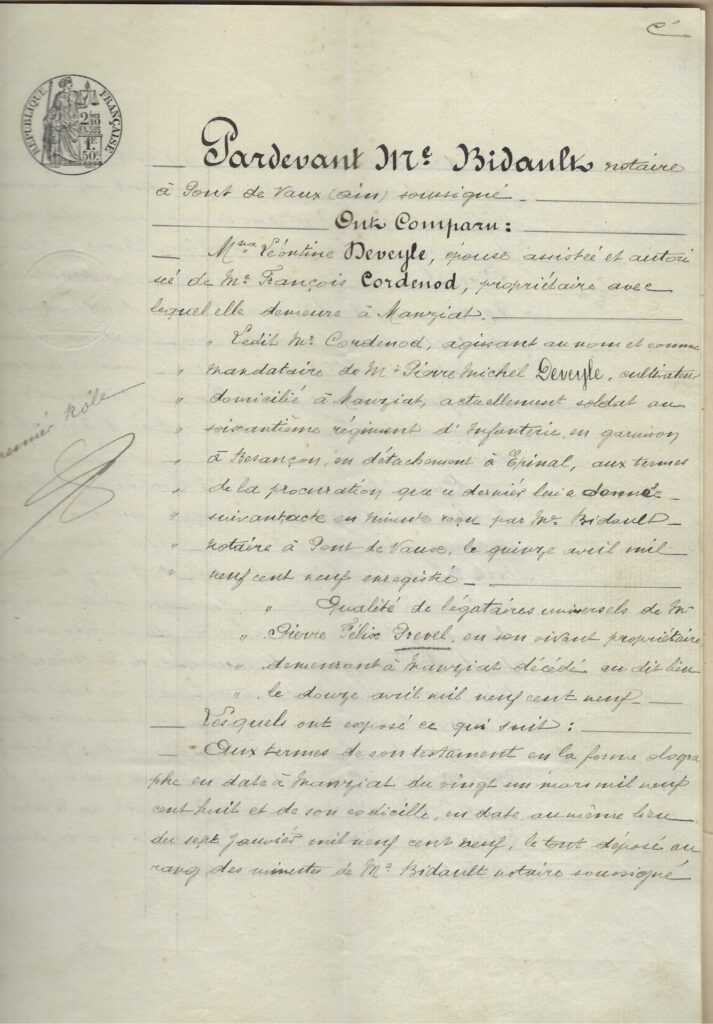 RÉPUBLIQUE FRANÇAISE
2 10
EN SUS
1F
50c
Pardevant Me Bidault notaire
à Pont de Vaux (ain) soussigné
Ont Comparu:
Mme Léontine Deveyle, épouse assistée et autori
sée de Mr François Cordenod, propriétaire avec
lequel elle demeure à Manziat.
" Ledit Mr Cordenod, agissant au nom et comme
" mandataire de Mr Pierre Michel Deveyle, cultivateur
" domicilié à Manziat, actuellement soldat au
" soixantième régiment d'Infanterie, en garnison
" à Besançon, en détachement à Epinal, aux termes
" de la procuration que ce dernier lui a donnée
" suivant acte en minute reçu par Me Bidault
" notaire à Pont de Vaux, le quinze avril mil
" neuf cent neuf enregistré
premier rôle
" Qualité de légataires universels de Mr
" Pierre Félix Prevel, en son vivant propriétaire
" demeurant à Manziat décédé au dit lieu
" le douze avril mil neuf cent neuf
Lesquels ont exposé ce qui suit:
Aux termes de son testament en la formeologra
phe en date à Manziat du vingt un mars mil neuf
cent huit et de son codicille, en date au même lieu
du sept Janvier mil neuf cent neuf, le tout déposé au
rang des minutes de Me Bidault notaire soussigné